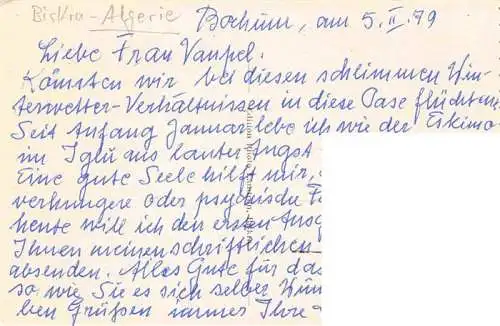 Biskra-Algerie
Bochum, am 5. II. 79
Liebe Frau Vaupel.
Könnten wir bei diesen schlimmen Win-
terwetter-Verhältnissen in diese Oase flüchten
Seit Anfang Januar lebe ich wie der Eskimo
im Iglu aus lauter Angst
Eine gute Seele hilft mir,
verhungere oder psychische
heute will ich den ersten Ausg
Ihnen meinen schriftlichen
absenden. Alles Gute für das
so wie Sie es sich selber wün
ben Grüßen immer Ihre